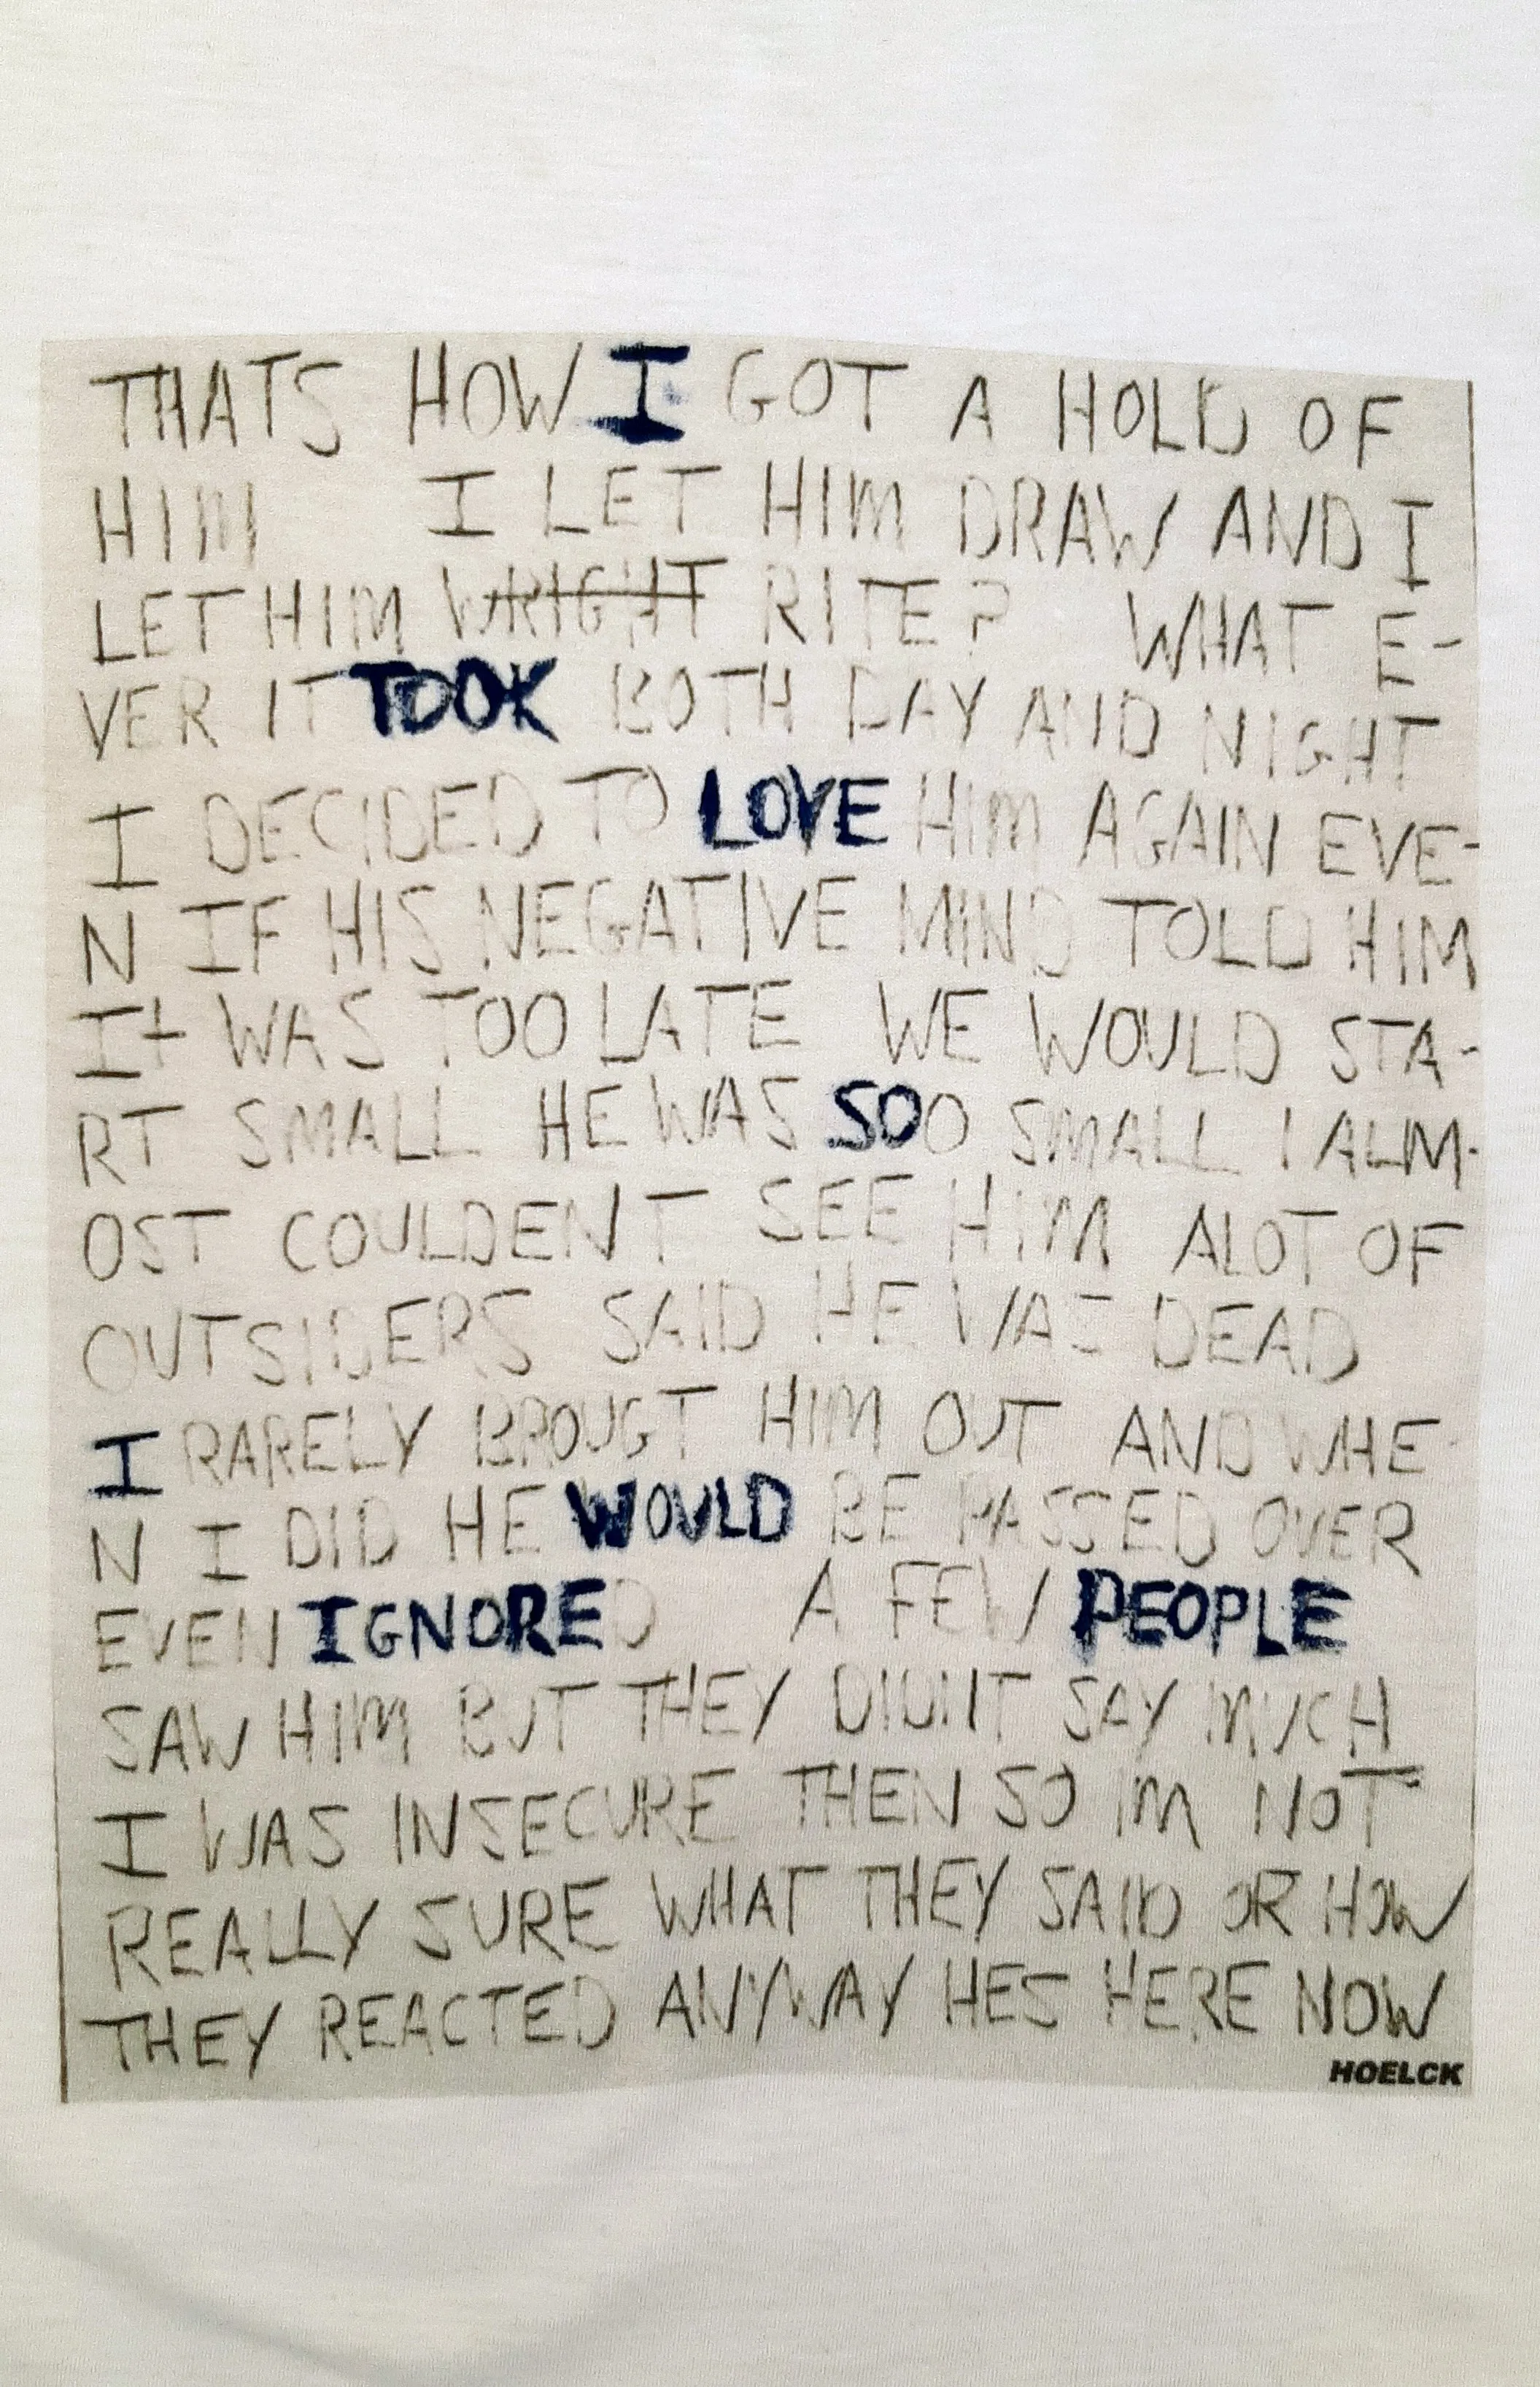 THATS HOW I GOT A HOLD OF
HIM I LET HIM DRAW AND I
LET HIM WRIGHT RITE? WHAT E-
VER IT TOOK BOTH DAY AND NIGHT
I DECIDED TO LOVE HIM AGAIN EVE-
N IF HIS NEGATIVE MIND TOLD HIM
It WAS TOO LATE WE WOULD STA-
RT SMALL HE WAS SOO SMALL I ALM-
OST COULDENT SEE HIM ALOT OF
OUTSIDERS SAID HE WAS DEAD
I RARELY BROUGT HIM OUT AND WHE-
N I DID HE WOULD BE PASSED OVER
EVEN IGNORED A FEW PEOPLE
SAW HIM BUT THEY DIDNT SAY MUCH
I WAS INSECURE THEN SO IM NOT
REALLY SURE WHAT THEY SAID OR HOW
THEY REACTED ANYWAY HES HERE NOW
HOELCK